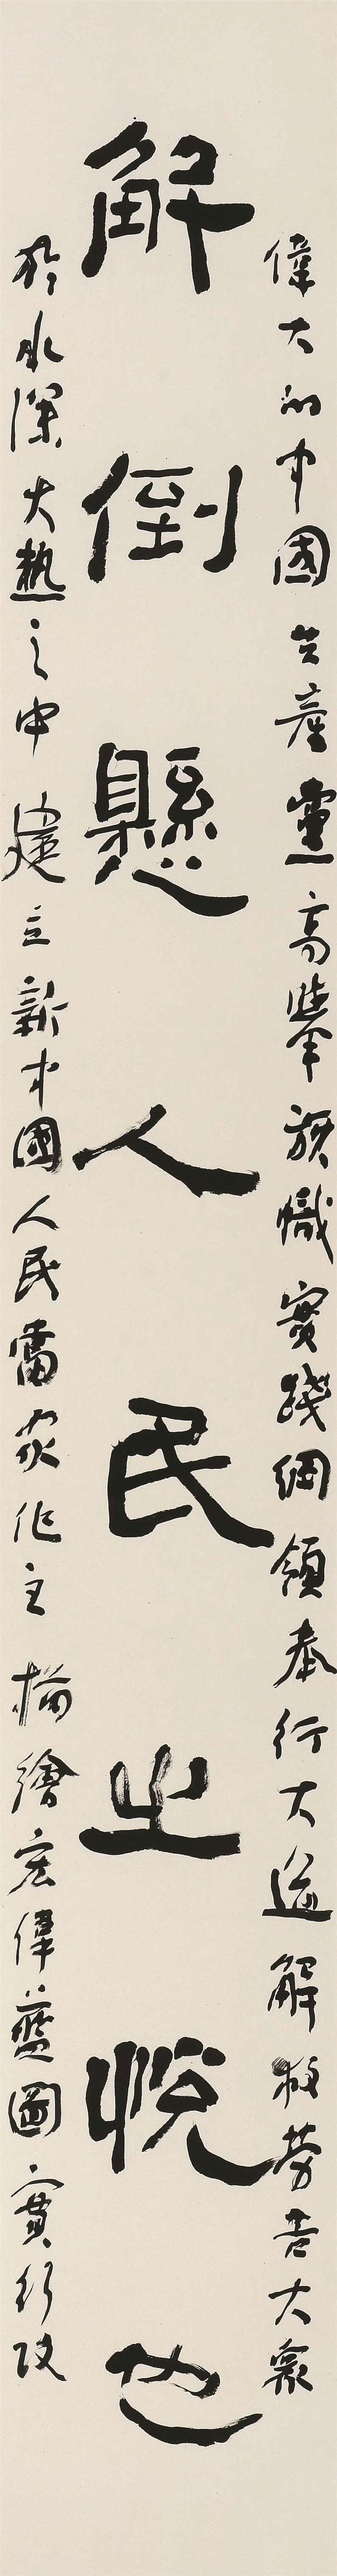 偉大的中國共產黨高舉旗幟實踐綱領奉行大道解救勞苦大衆
解倒懸人民之悅也
於水深火熱之中建立新中國人民當家作主描繪宏偉藍圖實行改